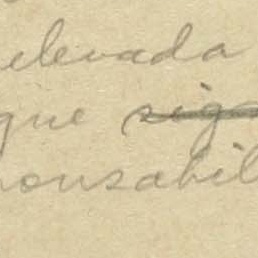 elevada
que sig
ponsabil